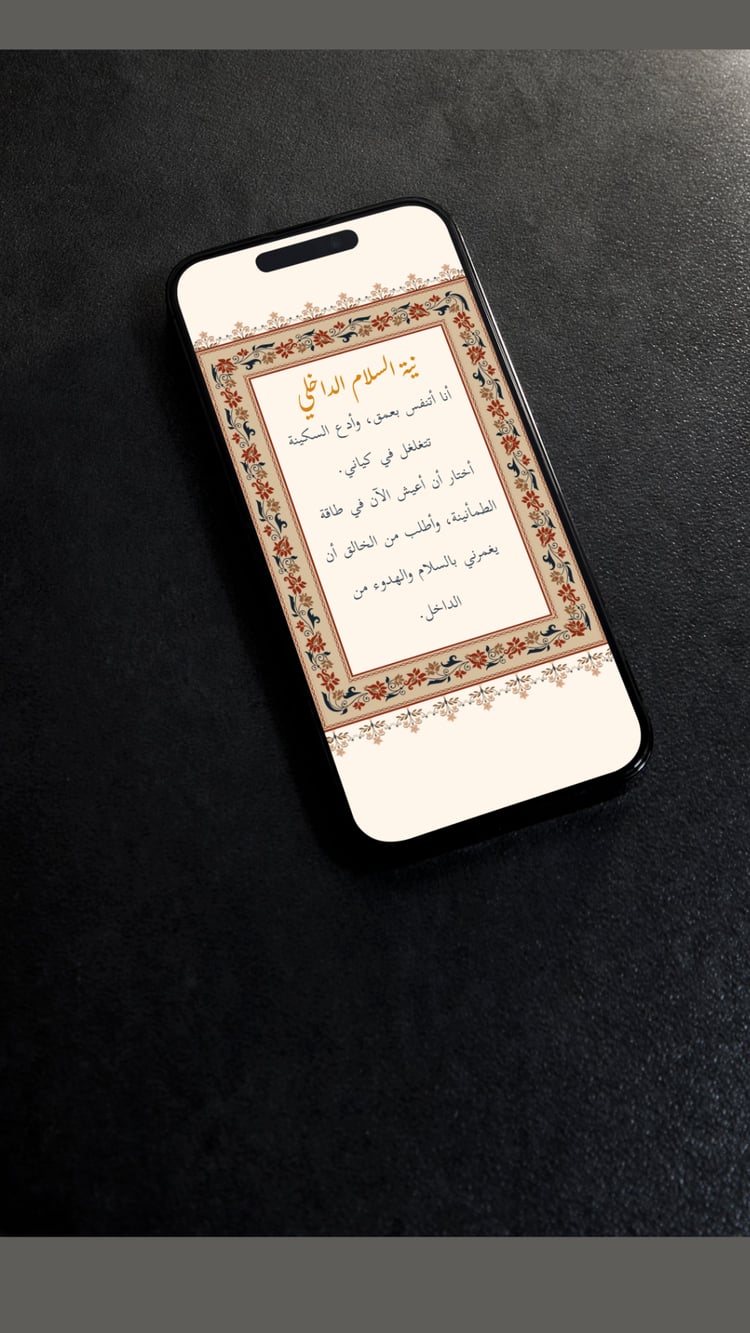 نية السلام الداخلي
أنا أتنفس بعمق، وأدع السكينة
تتغلغل في كياني.
أختار أن أعيش الآن في طاقة
الطمأنينة، وأطلب من الخالق أن
يغمرني بالسلام والهدوء من
الداخل.